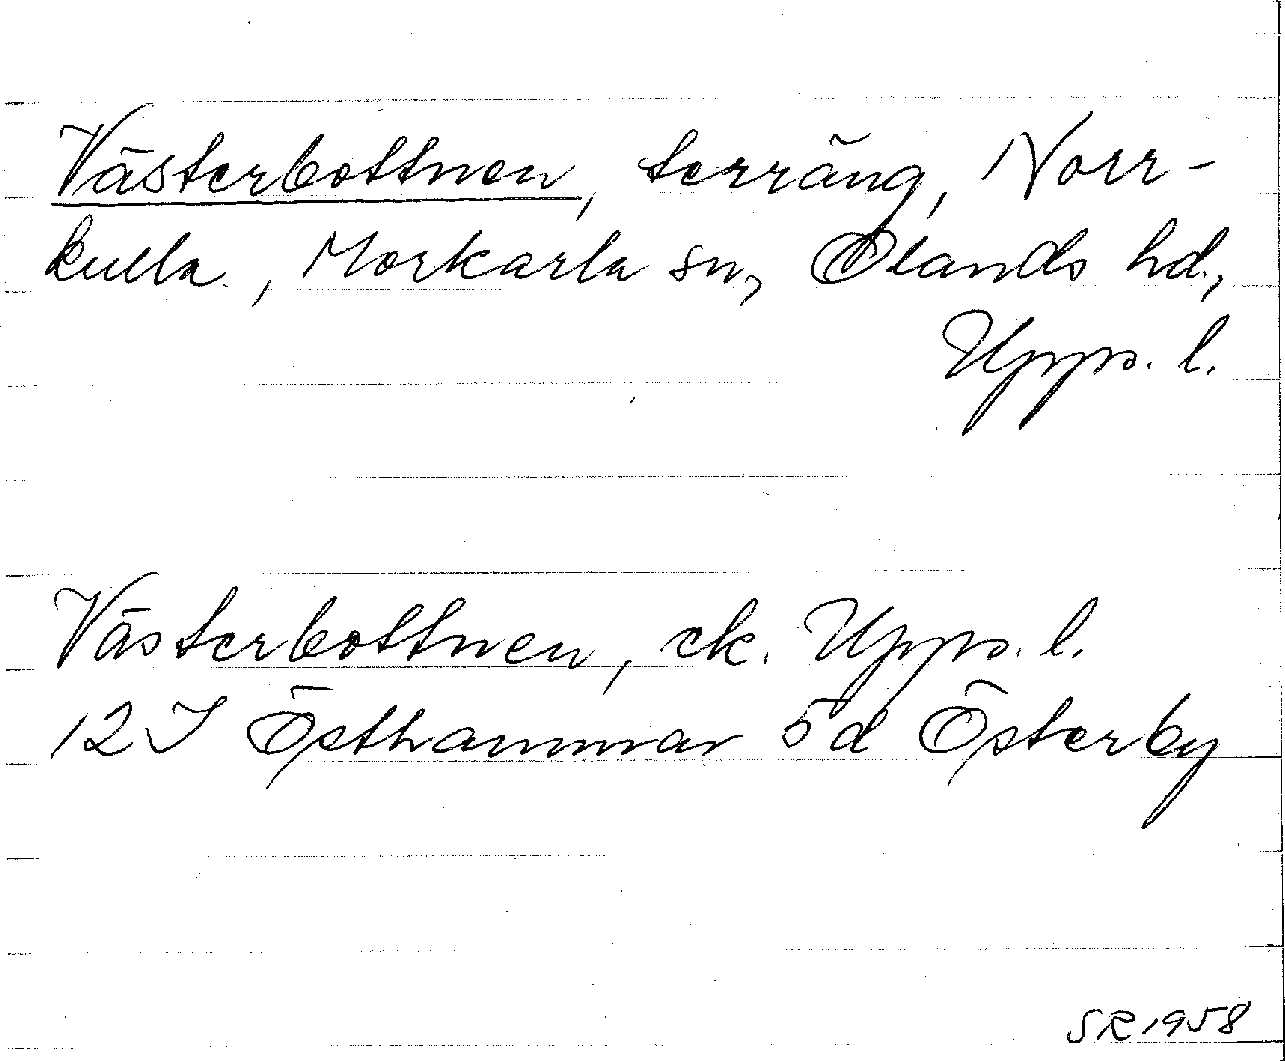 Västerbottnen, terräng, Norr-
kulla, Morkarla sn, Olands hd.,
Upps. l.
Västerbottnen, ek. Upps. l.
12 I Östhammar 5d Österby
SR 1958